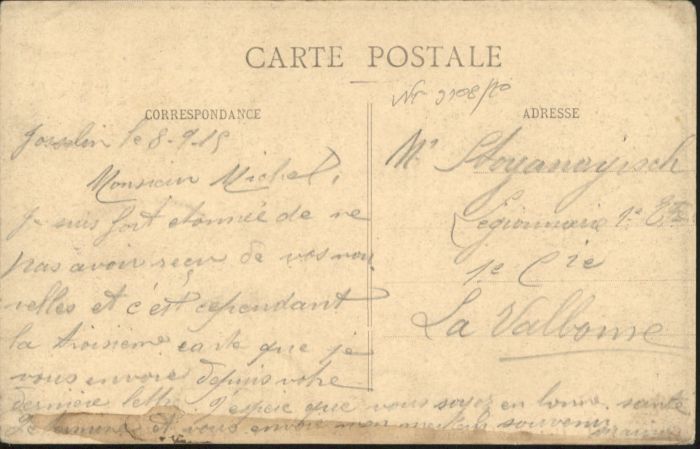 CARTE POSTALE
CORRESPONDANCE
ADRESSE
Josselin le 8-9-15
Monsieur Michel,
Je suis fort etonnée de ne
pas avoir reçu de vos nou
velles et c'est cependant
la troisieme carte que je
vous envoie depuis votre
derniere lettre J'espere que vous soyez en bonne santé
et vous envoie mon meilleur souvenir
Mr Stoyanayisch
Légionnaire 1e
1e Cie
La Valbonne